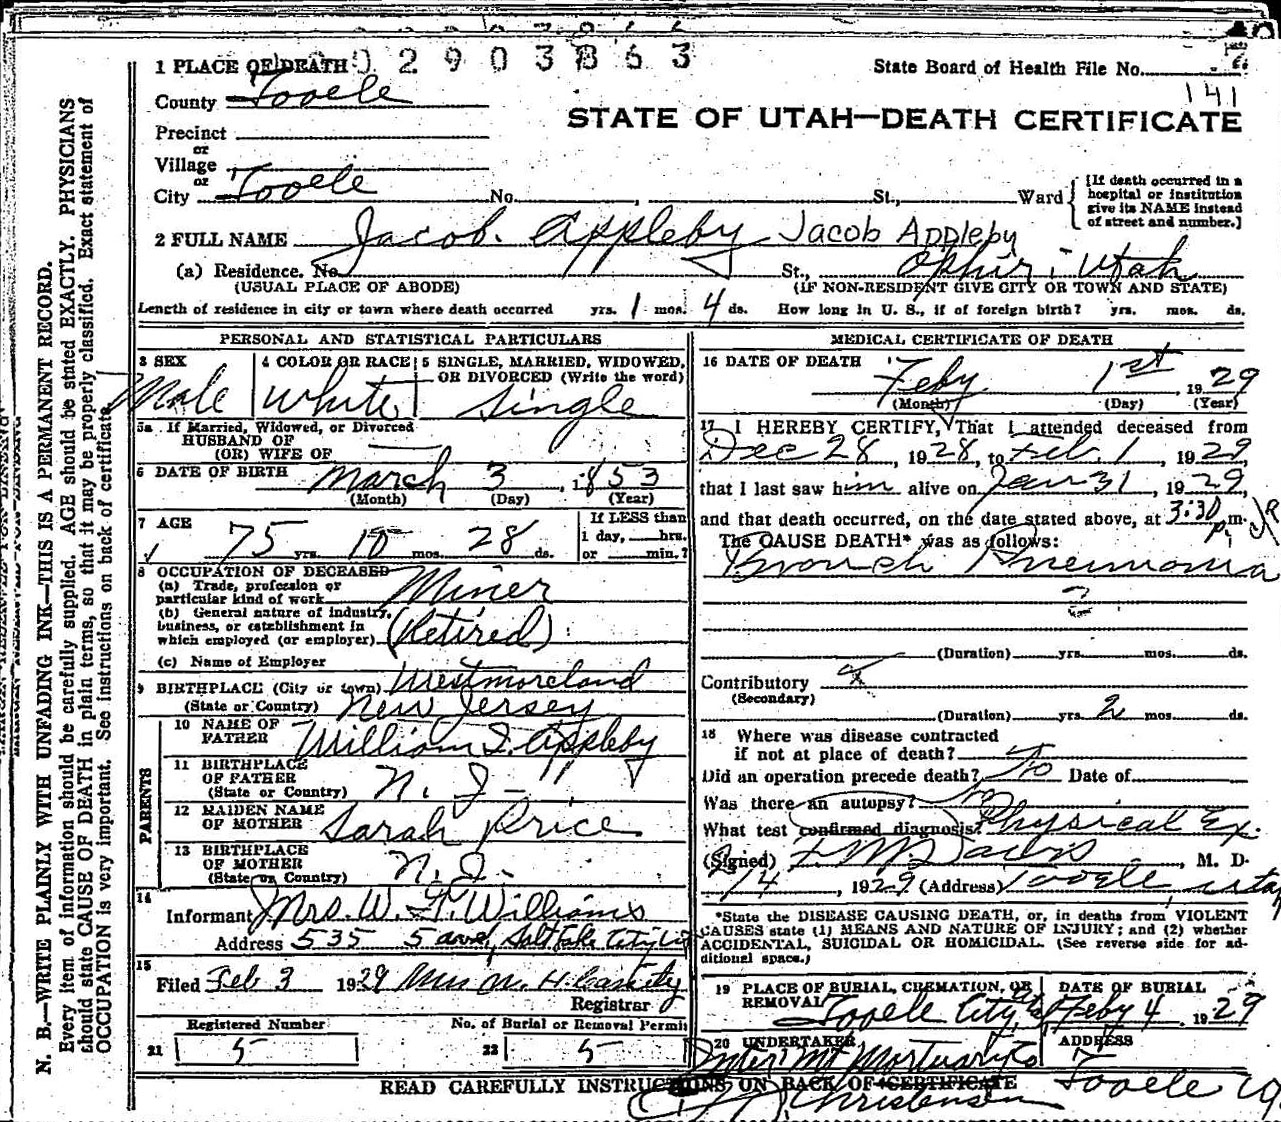 1 PLACE OF DEATH 0 2 9 0 3 8 6 3
State Board of Health File No.
141
County Tooele
STATE OF UTAH—DEATH CERTIFICATE
Precinct
or
Village
or
City Tooele No. , St., Ward
[If death occurred in a
hospital or institution
give its NAME instead
of street and number.]
2 FULL NAME Jacob. Appleby Jacob Appleby
(a) Residence. No. St., Ophir, Utah
(USUAL PLACE OF ABODE) (IF NON-RESIDENT GIVE CITY OR TOWN AND STATE)
Length of residence in city or town where death occurred yrs. 1 mos. 4 ds. How long in U. S., if of foreign birth? yrs. mos. ds.
PERSONAL AND STATISTICAL PARTICULARS
3 SEX Male
4 COLOR OR RACE White
5 SINGLE, MARRIED, WIDOWED,
OR DIVORCED (Write the word)
Single
5a If Married, Widowed, or Divorced
HUSBAND OF
(OR) WIFE OF
6 DATE OF BIRTH March 3, 1853
(Month) (Day) (Year)
7 AGE 75 yrs. 10 mos. 28 ds.
If LESS than
1 day, hrs.
or min.?
8 OCCUPATION OF DECEASED
(a) Trade, profession or
particular kind of work Miner
(b) General nature of industry,
business, or establishment in
which employed (or employer) (Retired)
(c) Name of Employer
9 BIRTHPLACE (City or town) Westmoreland
(State or Country) New Jersey
PARENTS
10 NAME OF
FATHER William I. Appleby
11 BIRTHPLACE
OF FATHER
(State or Country) N. J.
12 MAIDEN NAME
OF MOTHER Sarah Price
13 BIRTHPLACE
OF MOTHER
(State or Country) N. J.
14
Informant Mrs. W. F. Williams
Address 535 5 ave, Salt Lake City Ut
15
Filed Feb 3 1929 Mrs
Registrar
Registered Number No. of Burial or Removal Permit
21 5 22 5
MEDICAL CERTIFICATE OF DEATH
16 DATE OF DEATH Feby 1st 1929
(Month) (Day) (Year)
17 I HEREBY CERTIFY, That I attended deceased from
Dec 28, 1928, to Feb. 1, 1929,
that I last saw him alive on Jan 31, 1929,
and that death occurred, on the date stated above, at 3:30 p. m.
The CAUSE DEATH* was as follows:
Bronch Pneumonia
(Duration) yrs. mos. ds.
Contributory
(Secondary)
(Duration) yrs. 2 mos. ds.
18 Where was disease contracted
if not at place of death?
Did an operation precede death? No Date of
Was there an autopsy? no
What test confirmed diagnosis? Physical Ex.
(Signed) F M Davis, M. D.
1929 (Address) Tooele, Utah
*State the DISEASE CAUSING DEATH, or, in deaths from VIOLENT
CAUSES state (1) MEANS AND NATURE OF INJURY; and (2) whether
ACCIDENTAL, SUICIDAL OR HOMICIDAL. (See reverse side for ad-
ditional space.)
19 PLACE OF BURIAL, CREMATION, OR
REMOVAL Tooele City
DATE OF BURIAL
Feby 4, 1929
20 UNDERTAKER
Inter Mt Mortuary Co
Christensen
ADDRESS
Tooele
READ CAREFULLY INSTRUCTIONS ON BACK OF CERTIFICATE
N. B.—WRITE PLAINLY WITH UNFADING INK—THIS IS A PERMANENT RECORD.
Every item of information should be carefully supplied. AGE should be stated EXACTLY. PHYSICIANS
should state CAUSE OF DEATH in plain terms, so that it may be properly classified. Exact statement of
OCCUPATION is very important. See instructions on back of certificate.